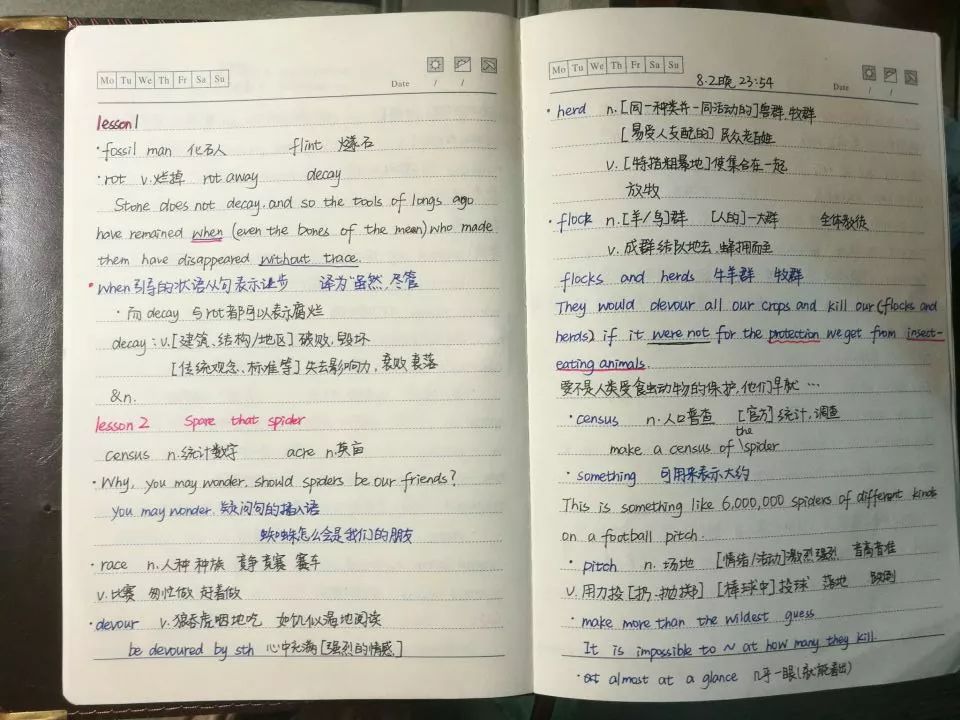 Mo Tu We Th Fr Sa Su
Date / /
lesson 1
·fossil man 化石人 flint 燧石
·rot v.烂掉 rot away decay
Stone does not decay, and so the tools of longs ago
have remained when (even the bones of the men) who made
them have disappeared without trace.
·when引导的状语从句表示让步 译为"虽然,尽管
·而decay 与rot都可以表示腐烂
decay:v.[建筑、结构/地区]破败,毁坏
[传统观念、标准等]失去影响力,衰败 衰落
&n.
lesson 2 Spare that spider
census n.统计数字 acre n.英亩
·Why, you may wonder, should spiders be our friends?
you may wonder,疑问句的插入语
蜘蛛怎么会是我们的朋友
·race n.人种 种族 竞争 竞赛 赛车
v.比赛 匆忙做 赶着做
·devour v.狼吞虎咽地吃 如饥似渴地阅读
be devoured by sth 心中充满[强烈的情感]
Mo Tu We Th Fr Sa Su
8.2晚 23:54
Date / /
·herd n.[同一种类并一同活动的]兽群,牧群
[易受人支配的]民众老百姓
v.[特指粗暴地]使集合在一起
放牧
·flock n.[羊/鸟]群 [人的]一大群 全体教徒
v.成群结队地去,蜂拥而至
flocks and herds 牛羊群 牧群
They would devour all our crops and kill our (flocks and
herds) if it were not for the protection we get from insect-
eating animals.
要不是人类受食虫动物的保护,他们早就…
·census n.人口普查 [官方]统计,调查
make a census of \the spider
·something 可用来表示大约
This is something like 6,000,000 spiders of different kinds
on a football pitch.
·pitch n.场地 [情绪/活动]激烈强烈 音高音准
v.用力投[扔、抛掷] [棒球中]投球 落地
·make more than the wildest guess
It is impossible to ~ at how many they kill
·almost at a glance 几乎一眼(就能看出)